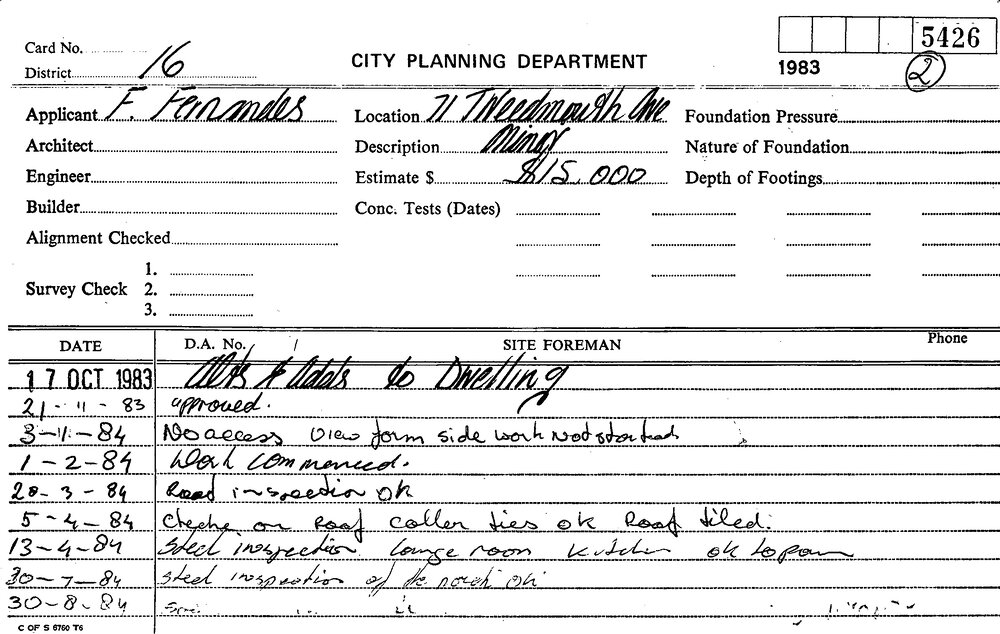 Card No.
5426
District 16
CITY PLANNING DEPARTMENT
1983 2
Applicant F. Fernandes Location 71 Tweedmouth Ave Foundation Pressure
Architect Description Minor Nature of Foundation
Engineer Estimate $ $15,000 Depth of Footings
Builder Conc. Tests (Dates)
Alignment Checked
1.
Survey Check 2.
3.
DATE D.A. No. SITE FOREMAN Phone
17 OCT 1983 Alts & Adds to Dwelling
21-11-83 approved.
3-11-84 No access view form side work not started
1-2-84 Work commenced.
20-3-84 inspection ok
5-4-84 Checke on Roof coller ties ok Roof tiled.
13-4-84 Steel inspection lounge room kitchen ok to pour
30-7-84 Steel inspection of ok
30-8-84
C OF S 6760 T6